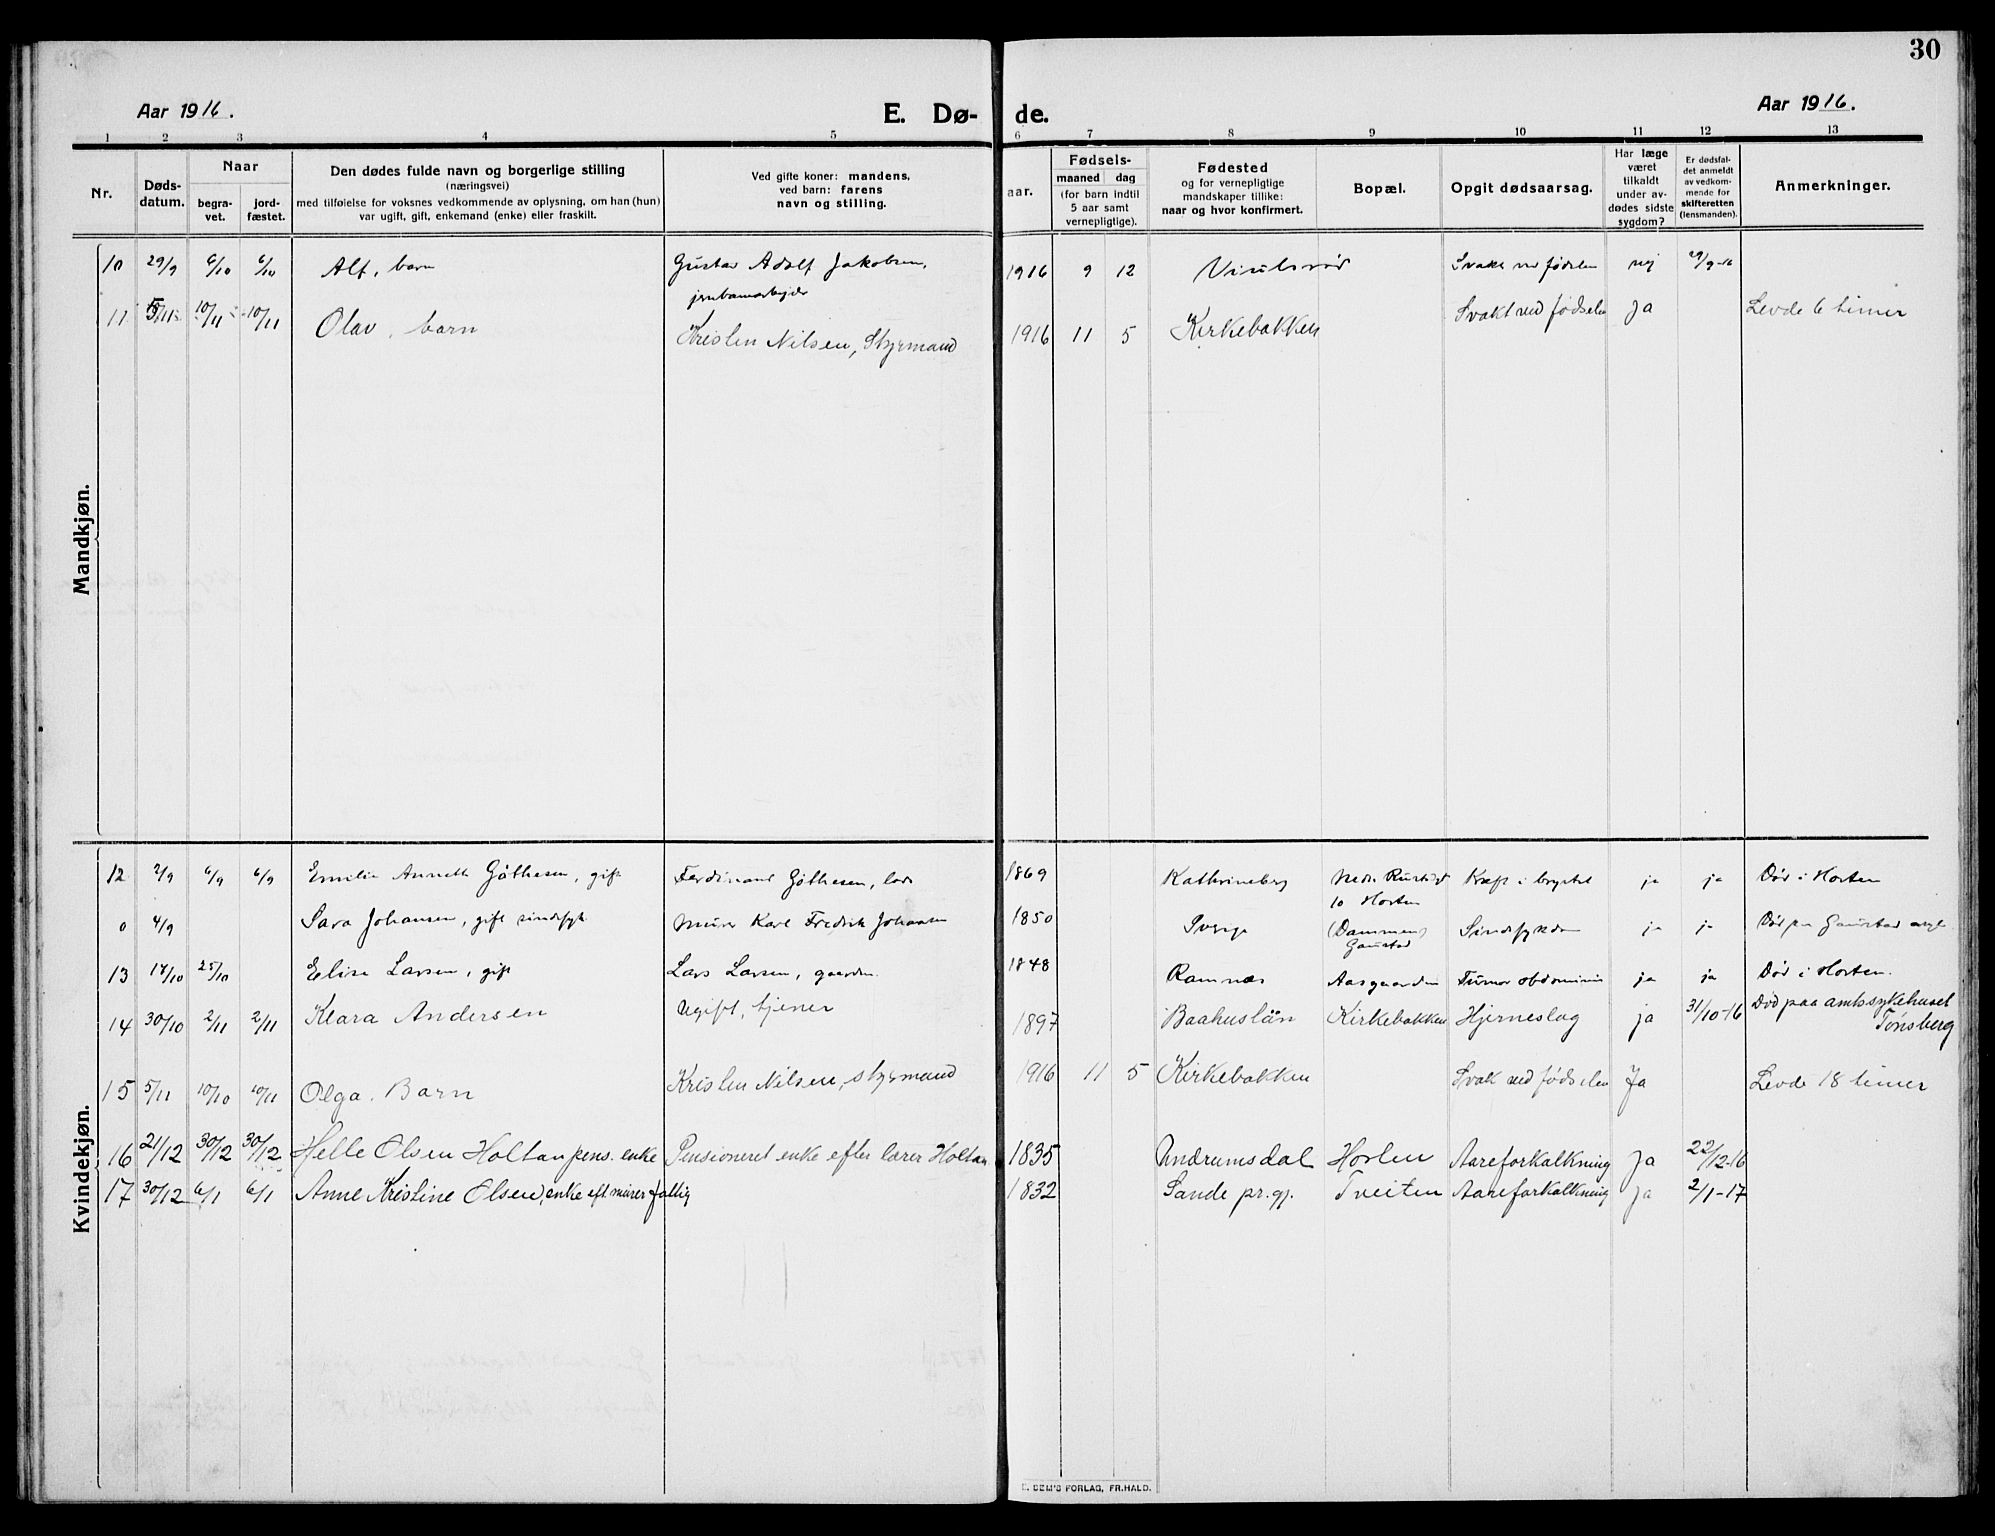 30
Aar 1916.
E. Dø-
de.
Aar 1916.
1 2 3 4 5 6 7 8 9 10 11 12 13
Nr.
Døds-
datum.
Naar
begra-
vet.
jord-
fæstet.
Den dødes fulde navn og borgerlige stilling
(næringsvei)
med tilføielse for voksnes vedkommende av oplysning, om han (hun)
var ugift, gift, enkemand (enke) eller fraskilt.
Ved gifte koner: mandens,
ved barn: farens
navn og stilling.
aar.
Fødsels-
maaned dag
(for barn indtil
5 aar samt
vernepligtige).
Fødested
og for vernepligtige
mandskaper tillike:
naar og hvor konfirmert.
Bopæl.
Opgit dødsaarsag.
Har læge
været
tilkaldt
under av-
dødes sidste
sygdom?
Er dødsfal-
det anmeldt
av vedkom-
mende for
skifteretten
(lensmanden).
Anmerkninger.
Mandkjøn.
10 29/9 6/10 6/10 Alf, barn Gustav Adolf Jakobsen, 1916 9 12 Svak ved fødselen nej 29/9-16
jernbanearbejder
11 5/11 10/11 10/11 Olav, barn Kristen Nilsen, Styrmand 1916 11 5 Kirkebakken Svakt ved fødselen Ja Levde 6 timer
Kvindekjøn.
12 2/9 6/9 6/9 Emilie Annette Göthesen, gift Ferdinand Göthesen, 1869 Kathrineberg Kræft i brystet ja ja Død i Horten
10 Horten
0 4/9 Sara Johansen, gift sindssyk Murer Karl Fredrik Johansen 1850 Sverige (Dammen) Sindssykdom ja ja Død paa Gaustad asyl
Gaustad
13 18/10 25/10 Elise Larsen, gift Lars Larsen, gaardm. 1848 Ramnæs Aasgaarden Tumor abdominis ja ja Død i Horten.
14 30/10 2/11 2/11 Klara Andersen Ugift, tjener 1897 Baahuslän Kirkebakken Hjerneslag ja 31/10-16 Død paa amtssykehuset
Tönsberg
15 5/11 10/10 10/11 Olga. Barn Kristen Nilsen, styrmand 1916 11 5 Kirkebakken Svak ved fødselen Ja Levde 18 timer
16 21/12 30/12 30/12 Helle Olsen Holtan pens. enke Pensioneret enke efter lærer Holtan 1835 Undrumsdal Horten Aareforkalkning Ja 22/12-16
17 30/12 6/1 6/1 Anne Kristine Olsen, enke eft. murer fattig 1832 Sande pr.gj. Tveiten Aareforkalkning Ja 2/1-17
SEM'S FORLAG, FR.HALD.